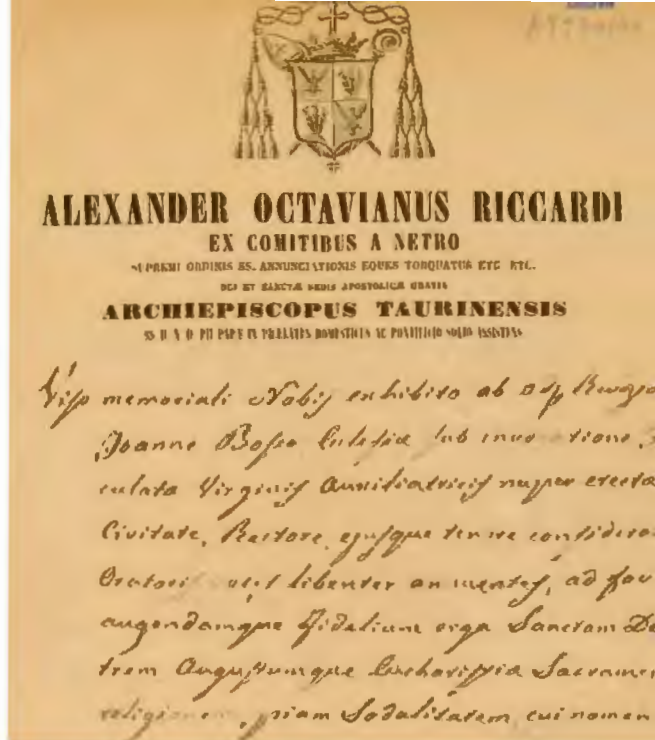 ALEXANDER OCTAVIANUS RICCARDI
EX COMITIBUS A NETRO
SUPREMI ORDINIS SS. ANNUNCIATIONIS EQUES TORQUATUS ETC. ETC.
DEI ET SANCTÆ SEDIS APOSTOLICÆ GRATIA
ARCHIEPISCOPUS TAURINENSIS
SS D N D PII PAPÆ IX PRÆLATUS DOMESTICUS AC PONTIFICIO SOLIO ASSISTENS
Viso memoriali Nobis exhibito ab
Joanne Bosco Ecclesiæ sub
culatæ Virginis Auxiliatricis nuper erecta
Civitate, Rectore, ejusque tenore considera
libenter annuentes, ad fov
augendamque Fidelium erga Sanctam De
trem Augustumque Eucharistiæ Sacramen
piam Sodalitatem, cui nomen